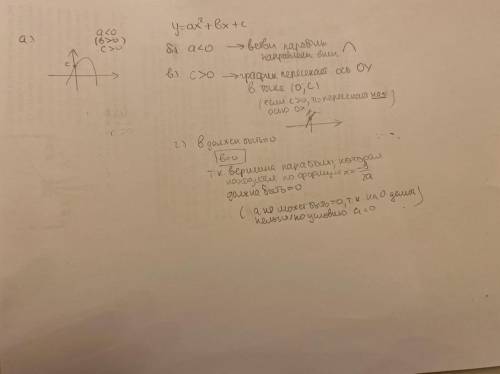 а)
a<0
(b>0)
c>0
c
y=ax²+bx+c
б) a<0 → ветви параболы
направлены вниз
в) c>0 → график пересекает ось OY
в точке (0,c)
(если c>0, то пересекает над
осью OX)
г) b должен быть=0
b=0
т.к. вершина параболы, которая
находится по формуле x=-b/2a
должна быть=0
(a не может быть=0, т.к. на 0 делить
нельзя/по условию a<0)